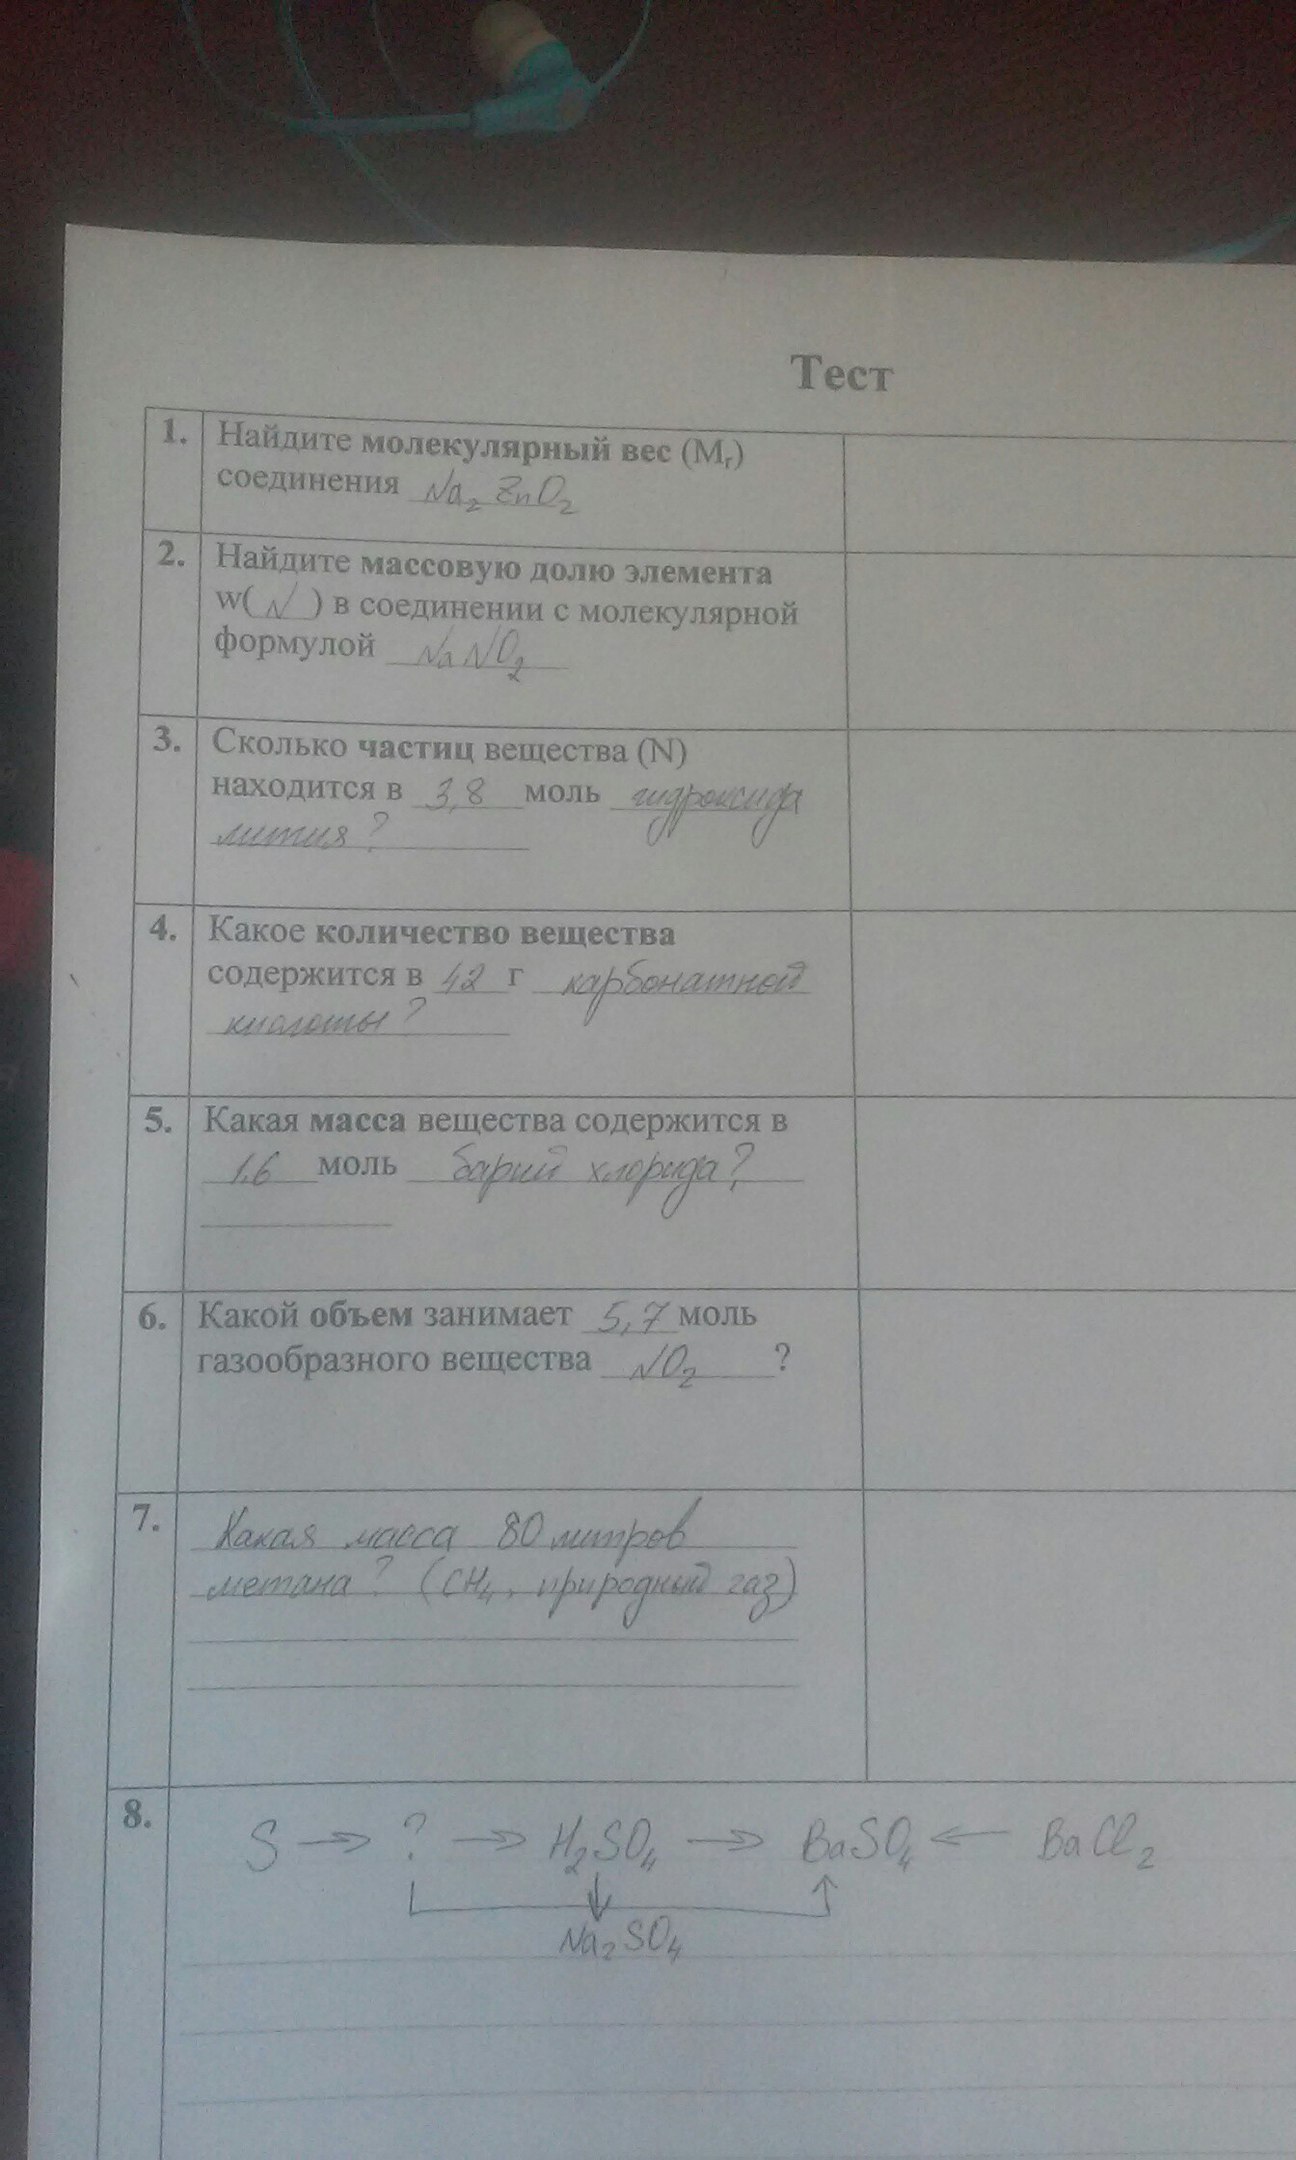 Тест
1. Найдите молекулярный вес (Mr)
соединения Na2ZnO2
2. Найдите массовую долю элемента
w( N ) в соединении с молекулярной
формулой NaNO2
3. Сколько частиц вещества (N)
находится в 3,8 моль гидроксида
лития?
4. Какое количество вещества
содержится в 42 г карбонатной
кислоты?
5. Какая масса вещества содержится в
1,6 моль барий хлорида?
6. Какой объем занимает 5,7 моль
газообразного вещества NO2 ?
7. Какая масса 80 литров
метана? (CH4, природный газ)
8. S → ? → H2SO4 → BaSO4 ← BaCl2
Na2SO4